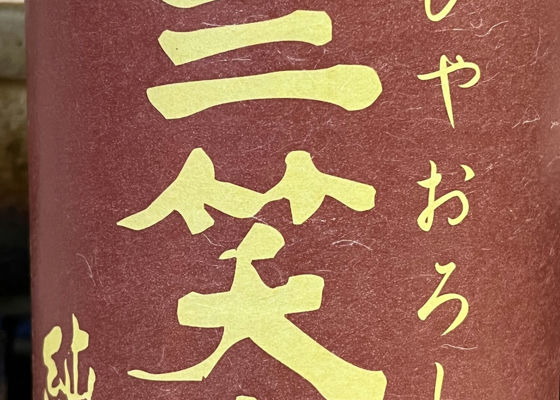 ひやおろし
三笑
純